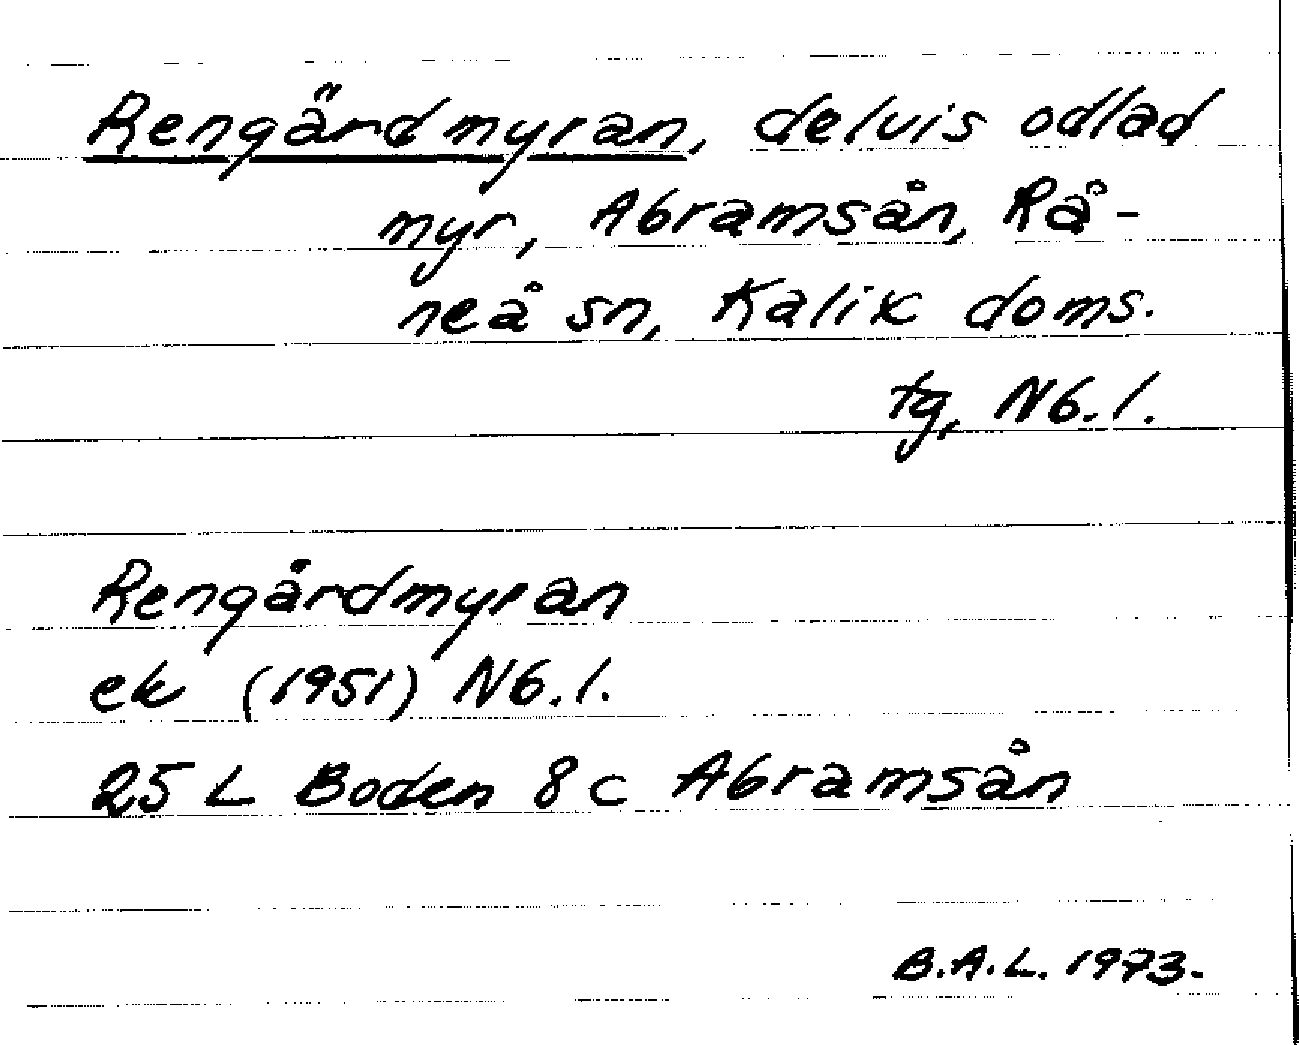 Rengärdmyran, delvis odlad
myr, Abramsån, Rå-
neå sn, Kalix doms.
tg, Nb.l.
Rengärdmyran
ek (1951) Nb.l.
25 L Boden 8 c Abramsån
B.A.L. 1973.